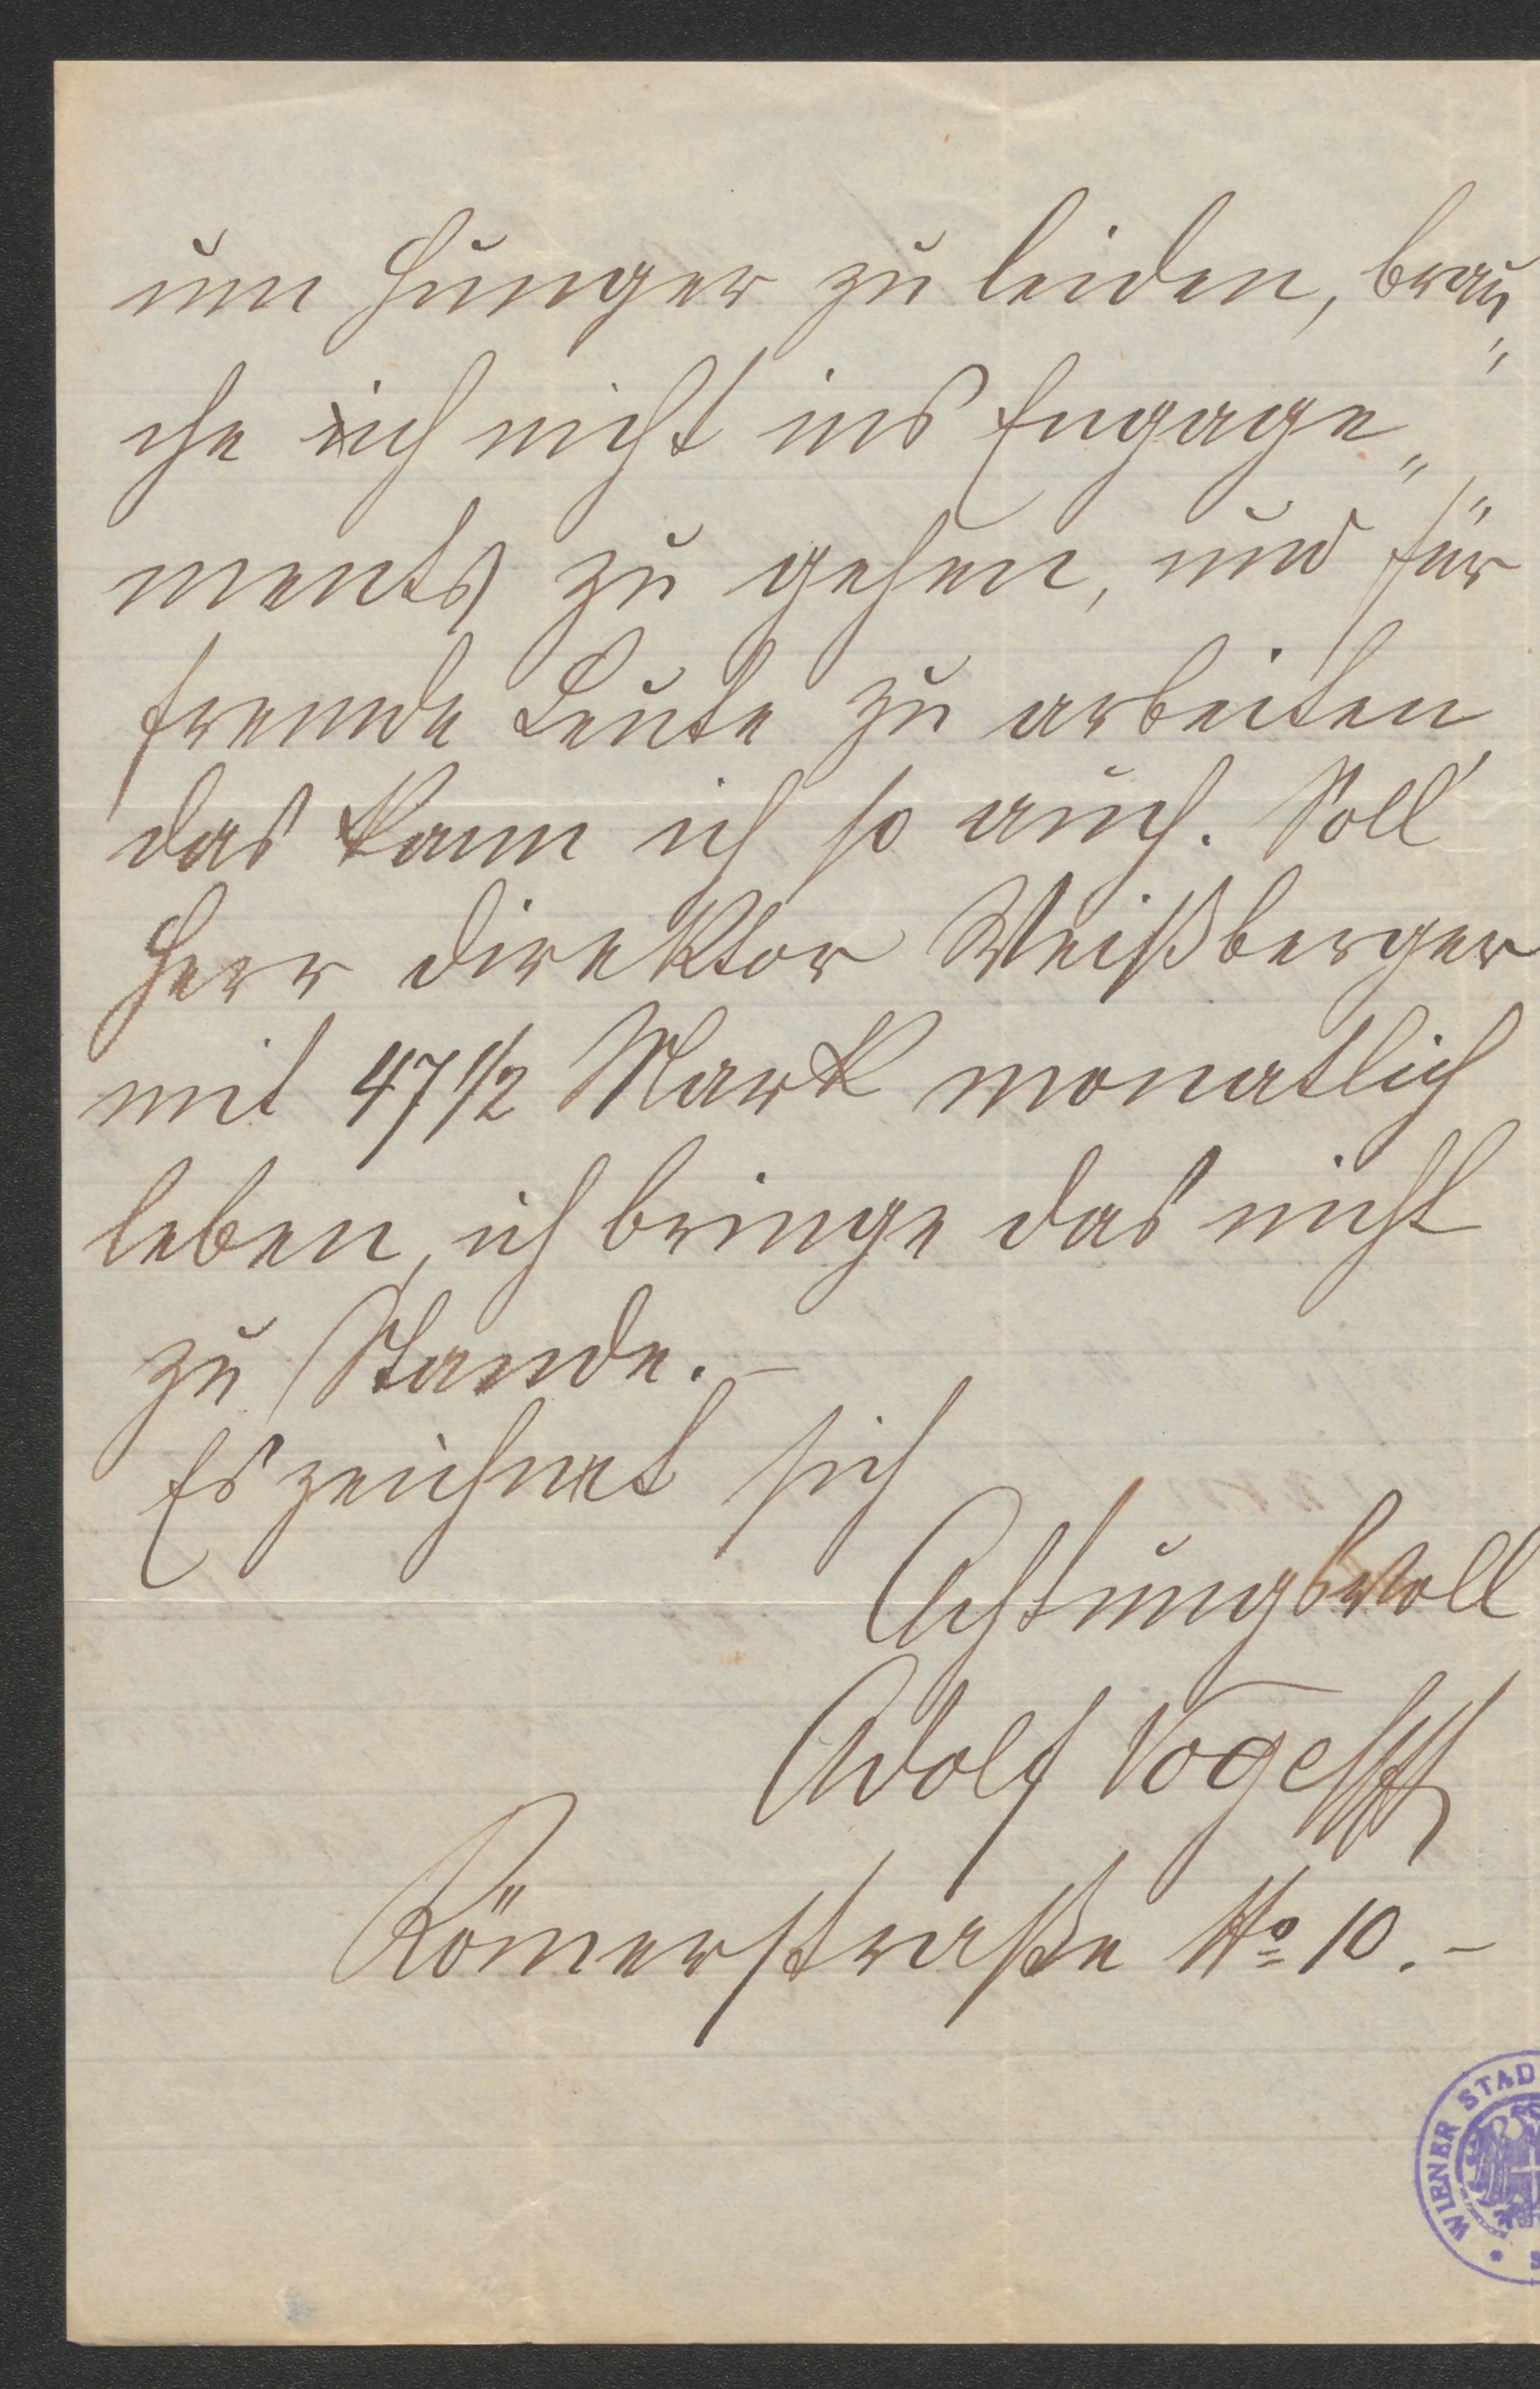 um Hunger zu leiden, brau„
che ich nicht ins Engage„
ments zu gehen, und für
fremde Leute zu arbeiten,
das kann ich so auch. Soll
Herr Direktor Weißberger
mit 47 1/2 Mark monatlich
leben, ich bringe das nicht
zu Stande. –
Es zeichnet sich
Achtungsvoll
Adolf
Römerstraße No 10. –
WIENER STAD